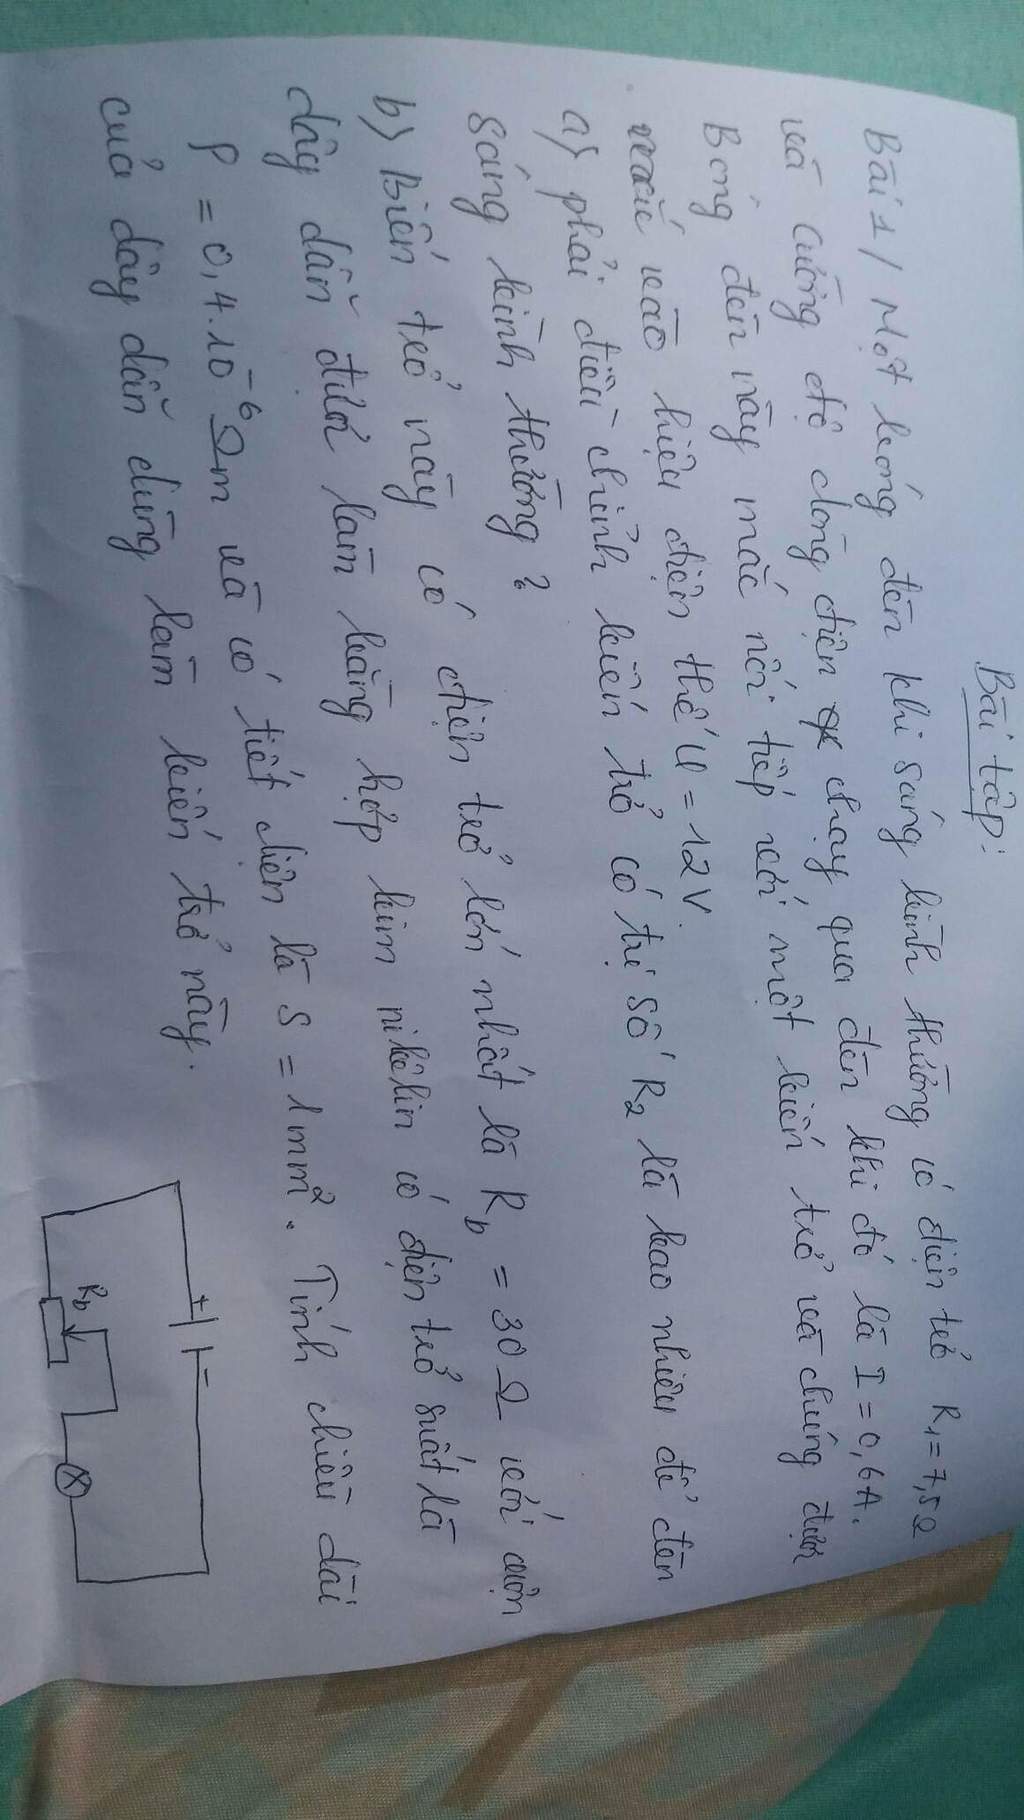 Bài tập:
Bài 1/ Một bóng đèn khi sáng bình thường có điện trở R₁=7,5Ω
và cường độ dòng điện chạy qua đèn khi đó là I=0,6A.
Bóng đèn này mắc nối tiếp với một biến trở và chúng được
mắc vào hiệu điện thế U=12V.
a) phải điều chỉnh biến trở có trị số R₂ là bao nhiêu để đèn
sáng bình thường?
b) Biến trở này có điện trở lớn nhất là R_b = 30Ω với cuộn
dây dẫn được làm bằng hợp kim nikêlin có điện trở suất là
ρ = 0,4.10⁻⁶Ωm và có tiết diện là S = 1mm². Tính chiều dài
của dây dẫn dùng làm biến trở này.
+ -
R_b